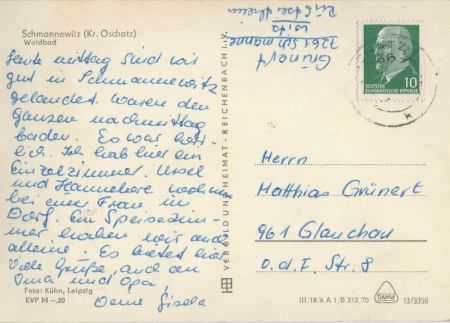 Schmannewitz (Kr. Oschatz)
Waldbad
Heute mittag sind wir
gut in Schmannewitz
gelandet. waren den
ganzen nachmittag
baden. Es war herr-
lich. Ich hab hier ein
Einzelzimmer. Ursel
und Hannelore wohnen
bei einer Frau im
Dorf. Ein Speisezim-
mer haben wir auch
alleine. Es bietet hier
Viele Grüße, auch an
Oma und Opa,
Deine Gisela
Foto: Kühn, Leipzig
EVP M -,20
VEB BILD UND HEIMAT · REICHENBACH I. V.
Grünert
7261 Schmanne-
witz
DEUTSCHE
DEMOKRATISCHE REPUBLIK
10
Herrn
Matthias Grünert
961 Glauchau
O.d.F. Str. 8
III/18/6 A 1/B 212/70
DAMW
13/3358